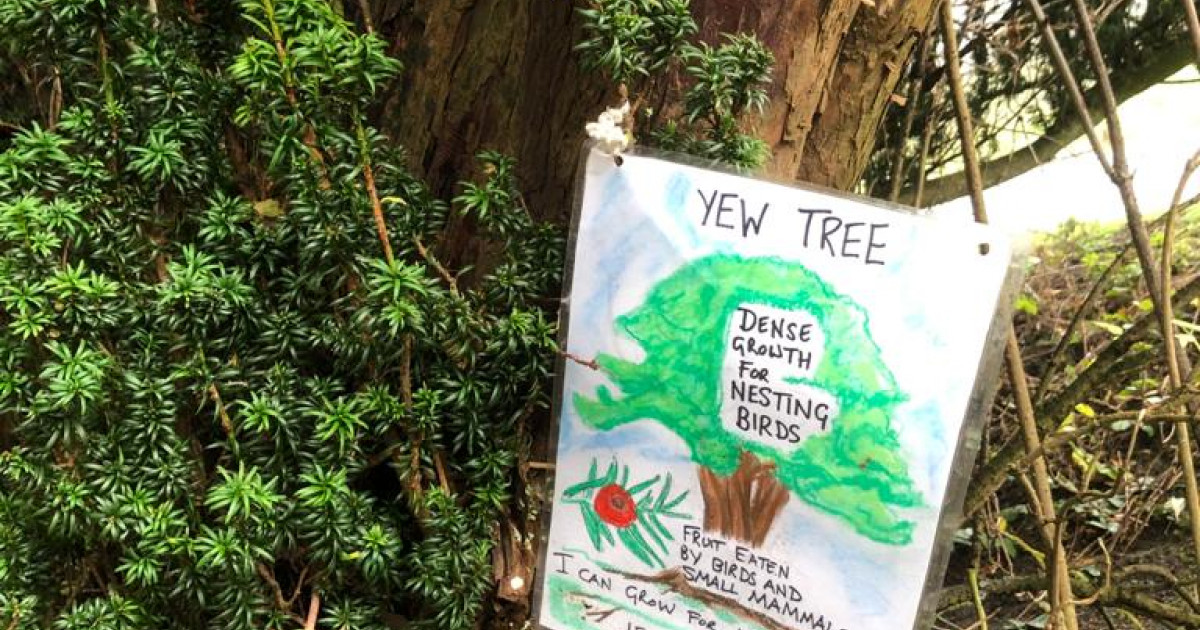 YEW TREE
DENSE
GROWTH
FOR
NESTING
BIRDS
FRUIT EATEN
BY BIRDS AND
SMALL MAMMALS
I CAN GROW FOR